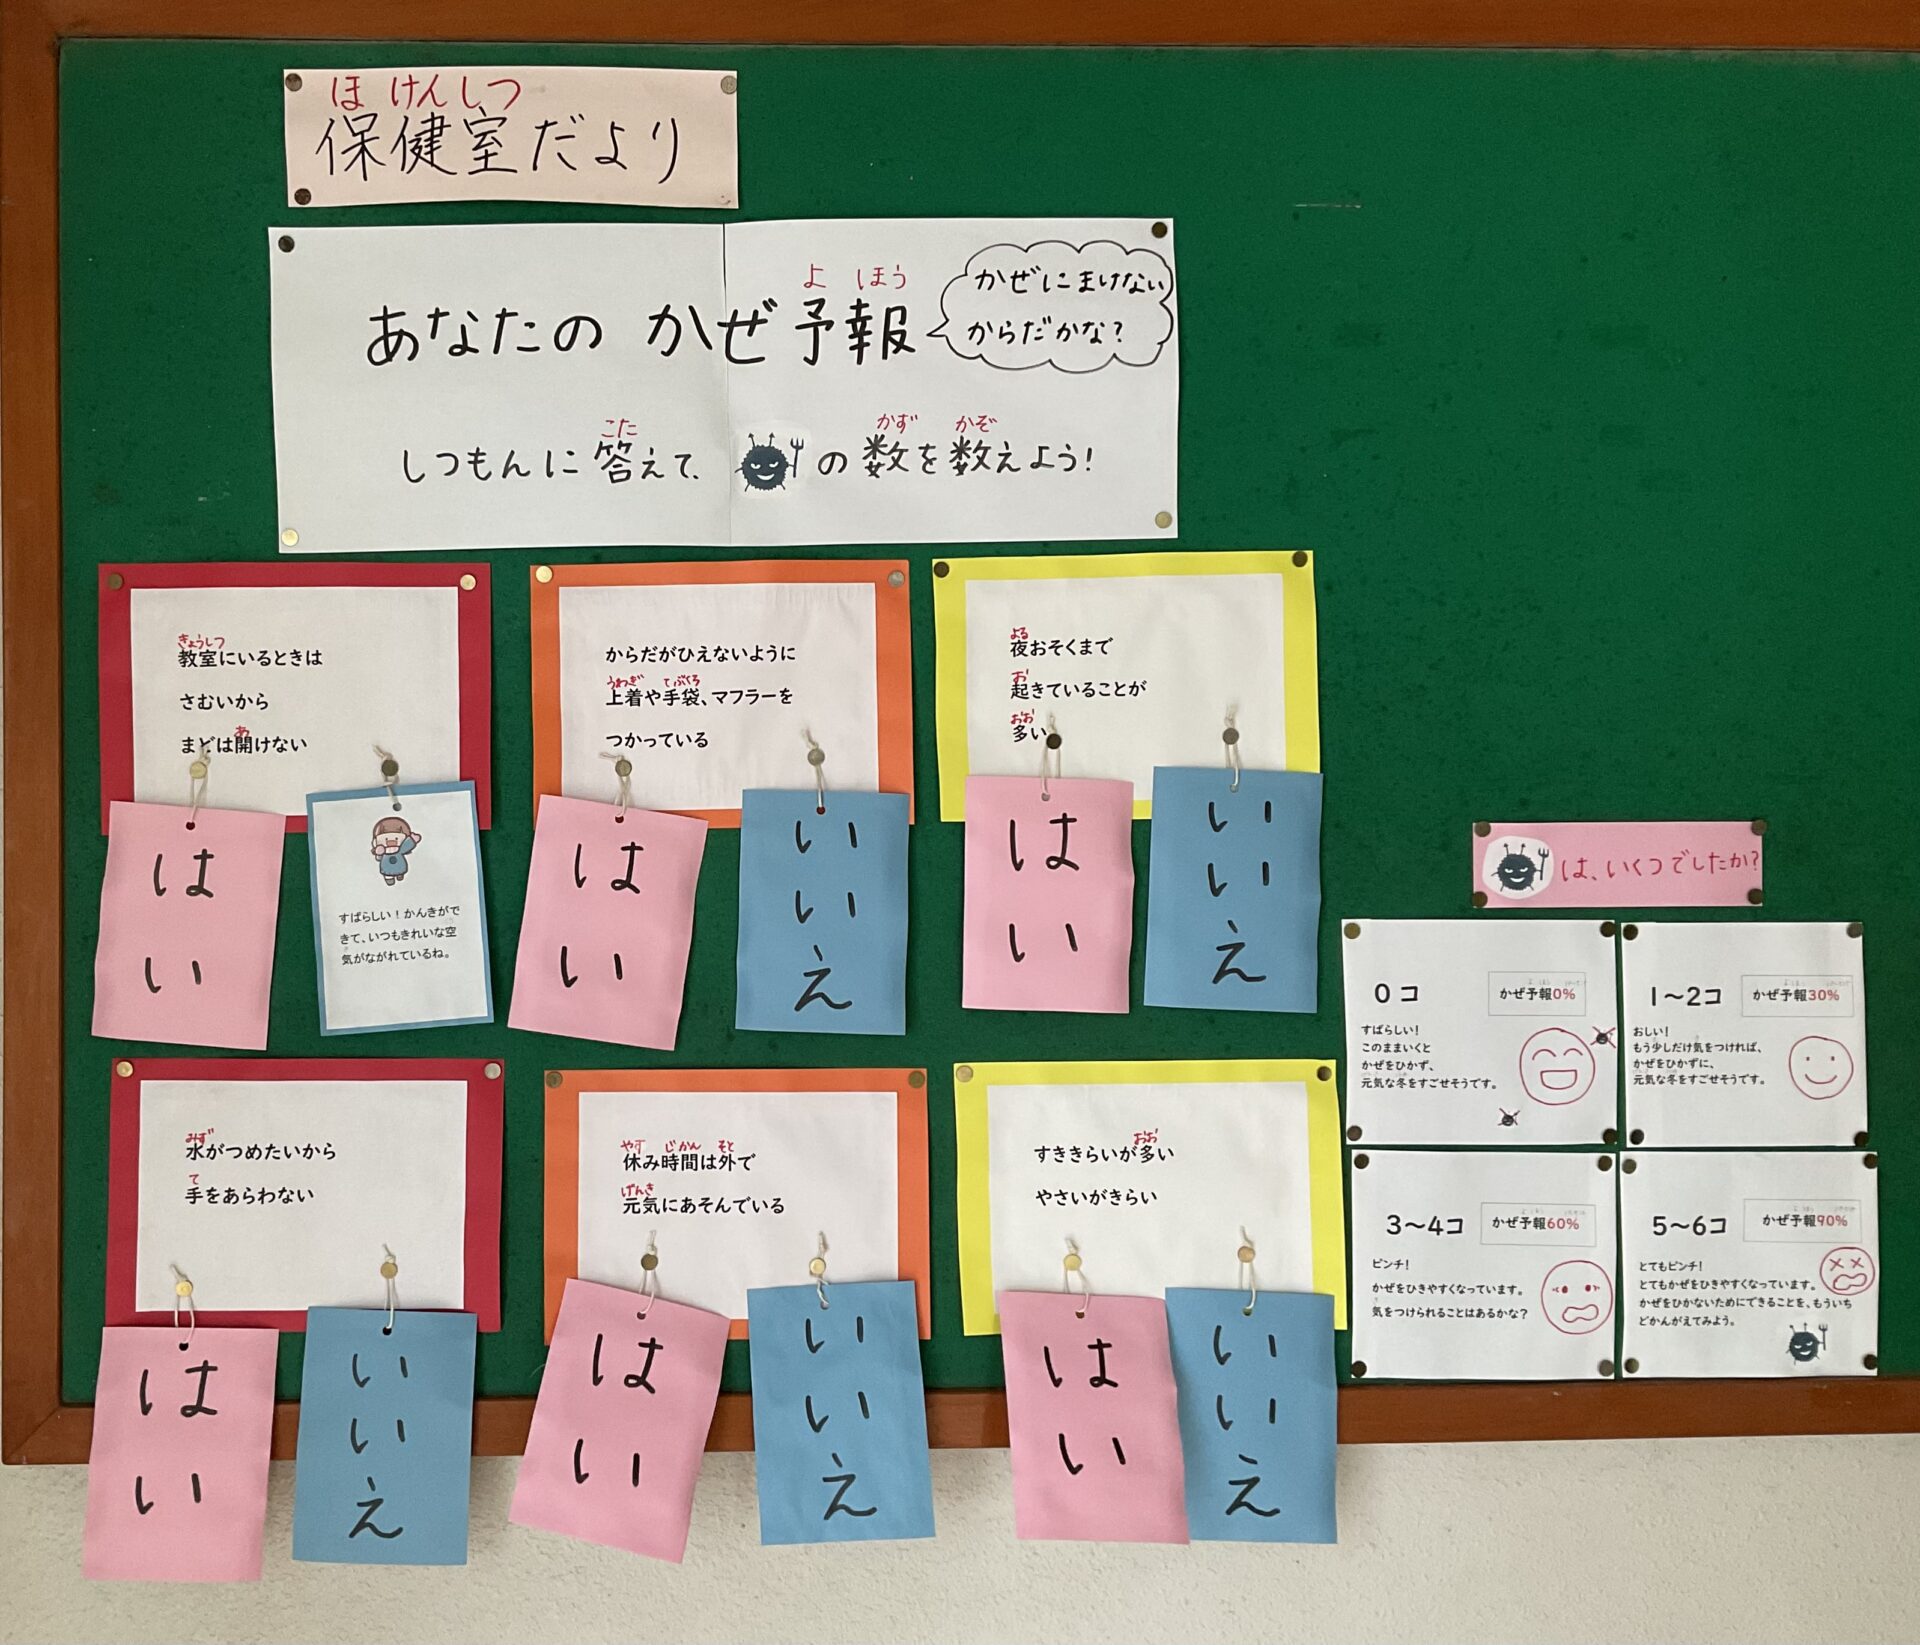 ほけんしつ
保健室だより
よほう
あなたの かぜ予報
かぜにまけない
からだかな?
こた かず かぞ
しつもんに答えて、の数を数えよう!
きょうしつ
教室にいるときは
さむいから
あ
まどは開けない
はい
すばらしい!かんきがで
きて、いつもきれいな空
気がながれているね。
からだがひえないように
うわぎ てぶくろ
上着や手袋、マフラーを
つかっている
はい
いいえ
よる
夜おそくまで
お
起きていることが
おお
多い
はい
いいえ
みず
水がつめたいから
て
手をあらわない
はい
いいえ
やす じかん そと
休み時間は外で
げんき
元気にあそんでいる
はい
いいえ
おお
すききらいが多い
やさいがきらい
はい
いいえ
は、いくつでしたか?
0コ
かぜ予報0%
すばらしい!
このままいくと
かぜをひかず、
元気な冬をすごせそうです。
1~2コ
かぜ予報30%
おしい!
もう少しだけ気をつければ、
かぜをひかずに、
元気な冬をすごせそうです。
3~4コ
かぜ予報60%
ピンチ!
かぜをひきやすくなっています。
気をつけられることはあるかな?
5~6コ
かぜ予報90%
とてもピンチ!
とてもかぜをひきやすくなっています。
かぜをひかないためにできることを、もういち
どかんがえてみよう。